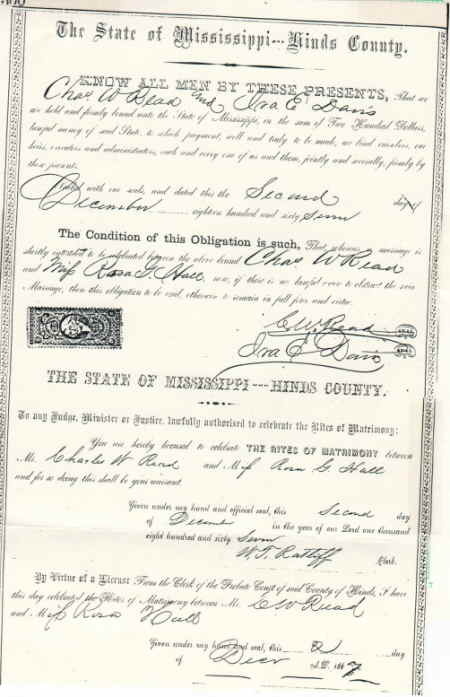 The State of Mississippi---Hinds County.
KNOW ALL MEN BY THESE PRESENTS, That we
Chas W Read and Ira E Davis
are held and firmly bound unto the State of Mississippi, in the sum of Five Hundred Dollars,
lawful money of said State, to which payment, well and truly to be made, we bind ourselves, our
heirs, executors and administrators, each and every one of us and them, jointly and severally, firmly by
these presents.
Sealed with our seals, and dated this the Second day of
December eighteen hundred and sixty Seven
The Condition of this Obligation is such, That whereas, a marriage is
shortly intended to be celebrated between the above bound Chas W Read
and Miss Rosa G. Hall now, if there is no lawful cause to obstruct the said
Marriage, then this obligation to be void, otherwise to remain in full force and virtue.
C W Read SEAL
Ira E Davis SEAL
THE STATE OF MISSISSIPPI---HINDS COUNTY.
To any Judge, Minister or Justice, lawfully authorised to celebrate the Rites of Matrimony:
You are hereby licensed to celebrate THE RITES OF MATRIMONY between
Mr. Charles W Read and Miss Rosa G Hall
and for so doing this shall be your warrant
Given under my hand and official seal, this Second day
of December in the year of our Lord one thousand
eight hundred and sixty Seven
W. T. Ratliff Clerk.
By Virtue of a License From the Clerk of the Probate Court of said County of Hinds, I have
this day celebrated the Rites of Matrimony between Mr. C W Read
and Miss Rosa Hall
Given under my hand and seal, this 2 day
of Decr A.D. 1867